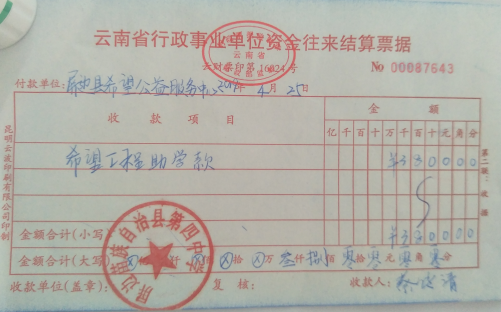 云南省行政事业单位资金往来结算票据
云南省
云财票印第16024号
No 00087643
付款单位:屏边县希望公益服务中心 2019年4月25日
收款项目 金额
亿千百十万千百十元角分
希望工程助学款 ¥330000
金额合计(小写) ¥330000
金额合计(大写) ⊗拾⊗万叁仟 佰零拾零元零角零分
收款单位(盖章): 复核: 收款人:
屏边苗族自治县第四中学
昆明云波印刷有限公司印制
第二联:收据